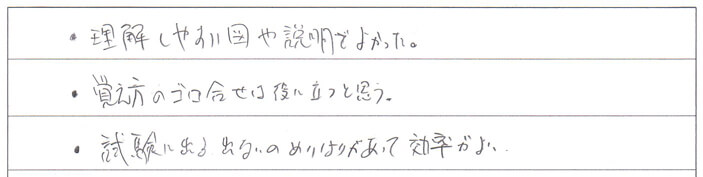 ・理解しやすい図や説明でよかった。
・覚え方のゴロ合せは役に立つと思う。
・試験に出る出ないのめりはりがあって効率がよい.